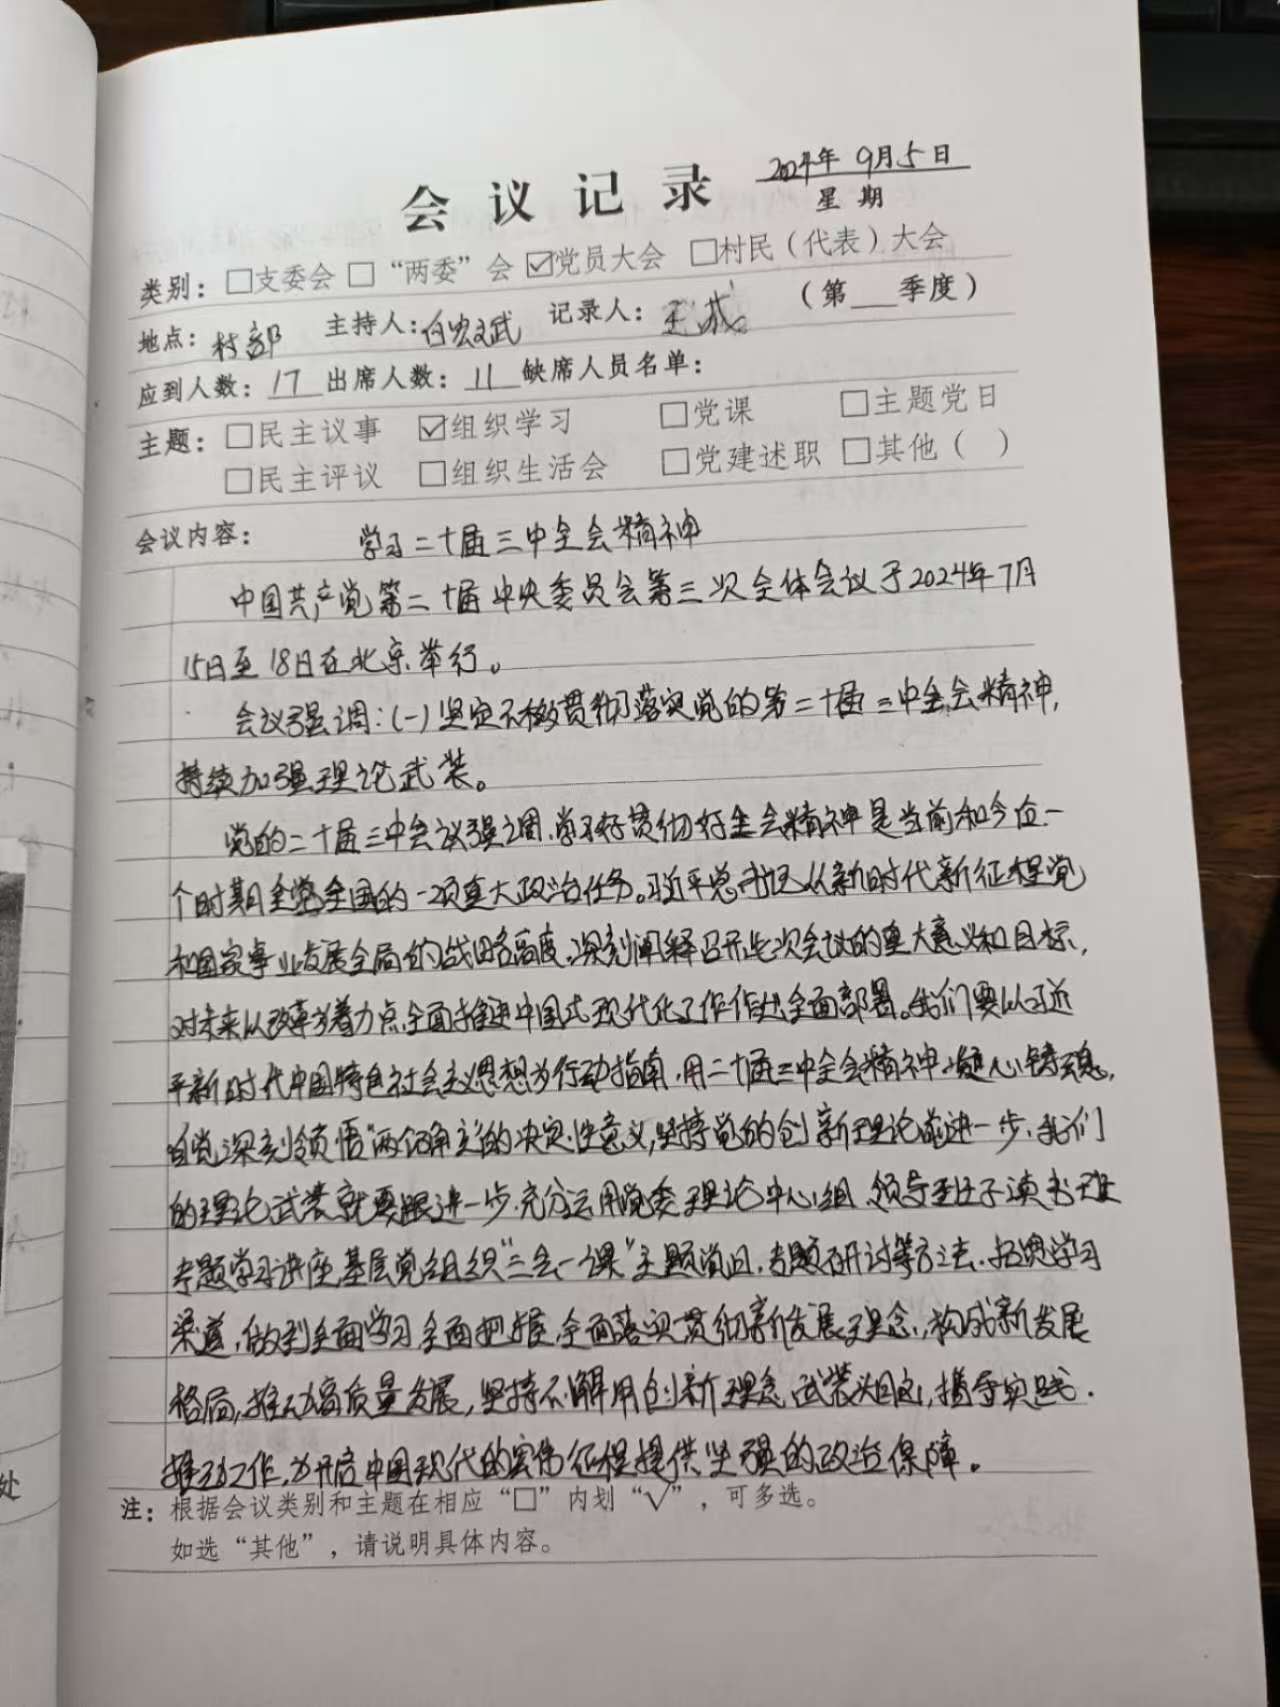 2024年 9月5日
会议记录
星期
类别：□支委会 □“两委”会 ☑党员大会 □村民（代表）大会
（第 季度）
地点：村部 主持人：白宏斌 记录人：
应到人数：17 出席人数：11 缺席人员名单：
主题：□民主议事 ☑组织学习 □党课 □主题党日
□民主评议 □组织生活会 □党建述职 □其他（ ）
会议内容： 学习二十届三中全会精神
中国共产党第二十届中央委员会第三次全体会议于2024年7月
15日至18日在北京举行。
会议强调：(一)坚定不移贯彻落实党的第二十届三中全会精神，
持续加强理论武装。
党的二十届三中会议强调，学习好贯彻好全会精神是当前和今后一
个时期全党全国的一项重大政治任务。习近平总书记从新时代新征程党
和国家事业发展全局的战略高度，深刻阐释召开此次会议的重大意义和目标，
对未来以改革为着力点全面推进中国式现代化工作作出全面部署。我们要以习近
平新时代中国特色社会主义思想为行动指南，用二十届三中全会精神凝心铸魂，
自觉深刻领悟“两个确立”的决定性意义，坚持党的创新理论前进一步，我们
的理论武装就要跟进一步，充分运用党委理论中心组、领导班子读书班
专题学习讲座，基层党组织“三会一课”主题党日，专题研讨等方法，拓宽学习
渠道，做到全面学习，全面把握，全面落实贯彻新发展理念，构成新发展
格局，推动高质量发展，坚持不懈用创新理念武装头脑，指导实践，
推动工作，为开启中国现代的宏伟征程提供坚强的政治保障。
注：根据会议类别和主题在相应“□”内划“√”，可多选。
如选“其他”，请说明具体内容。
处